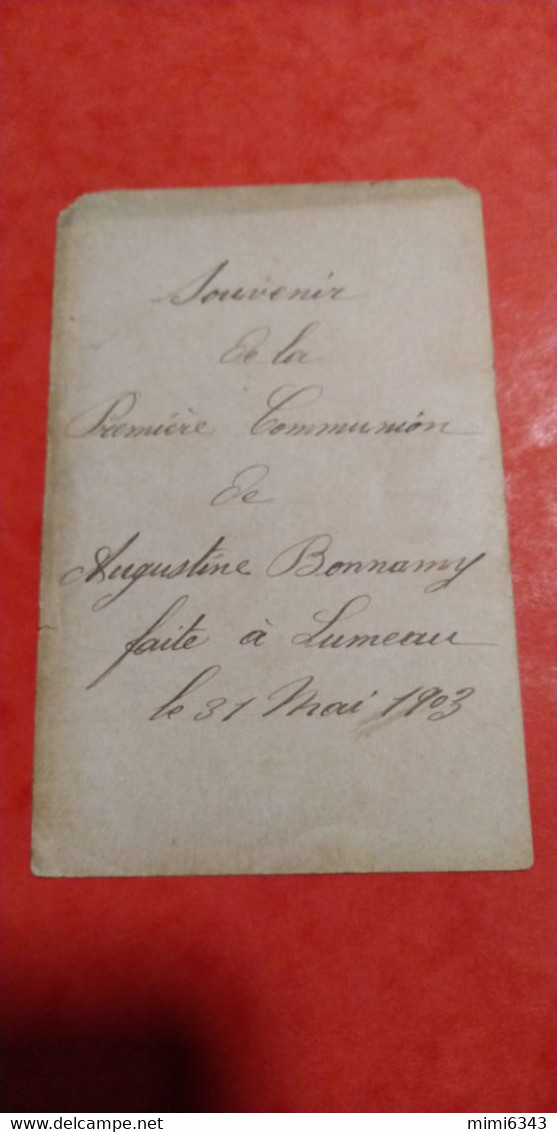 Souvenir
de la
Première Communion
de
Augustine Bonnamy
faite à Lumeau
le 31 Mai 1903
mimi6343